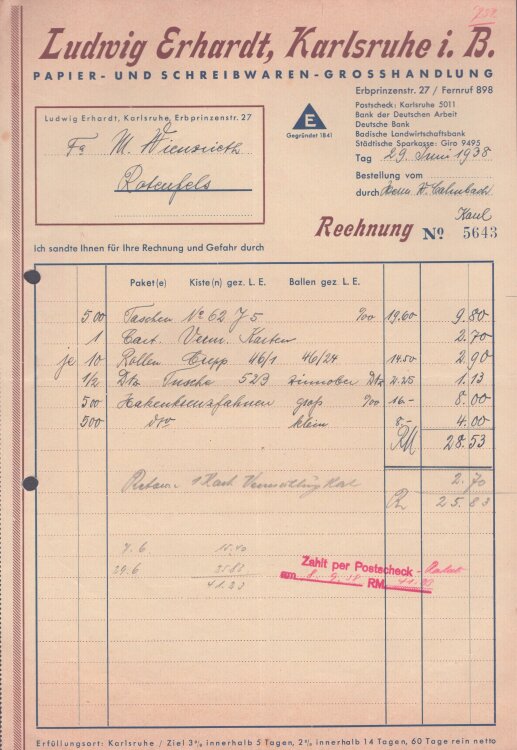 Ludwig Erhardt, Karlsruhe i. B.
PAPIER- UND SCHREIBWAREN-GROSSHANDLUNG
Erbprinzenstr. 27 / Fernruf 898
Postscheck: Karlsruhe 5011
Bank der Deutschen Arbeit
Deutsche Bank
Badische Landwirtschaftsbank
Städtische Sparkasse: Giro 9495
E
Gegründet 1841
Ludwig Erhardt, Karlsruhe, Erbprinzenstr. 27
Fa M. Wiensrieth
Rotenfels
Tag 29. Juni 1938
Bestellung vom
durch Herrn W. Calmbach
Rechnung No 5643
Ich sandte Ihnen für Ihre Rechnung und Gefahr durch
Paket(e) Kiste(n) gez. L. E. Ballen gez. L. E.
500 Taschen No 62 J 5 %00 19.60 9.80
1 Cart. Verm. Karten 2.70
je 10 Rollen Crepp 46/1 46/24 14.50 2.90
1/2 Dtz Tusche 523 zinnober Dtz 2.25 1.13
500 Hakenkreuzfahnen groß %00 16.- 8.00
500 dto klein 8.- 4.00
RM 28.53
Retour 1 Kart 2.70
25.83
7.6 15.40
29.6 25.83
41.23
Zahlt per Postscheck
am 8.9.38 RM
Erfüllungsort: Karlsruhe / Ziel 3% innerhalb 5 Tagen, 2% innerhalb 14 Tagen, 60 Tage rein netto